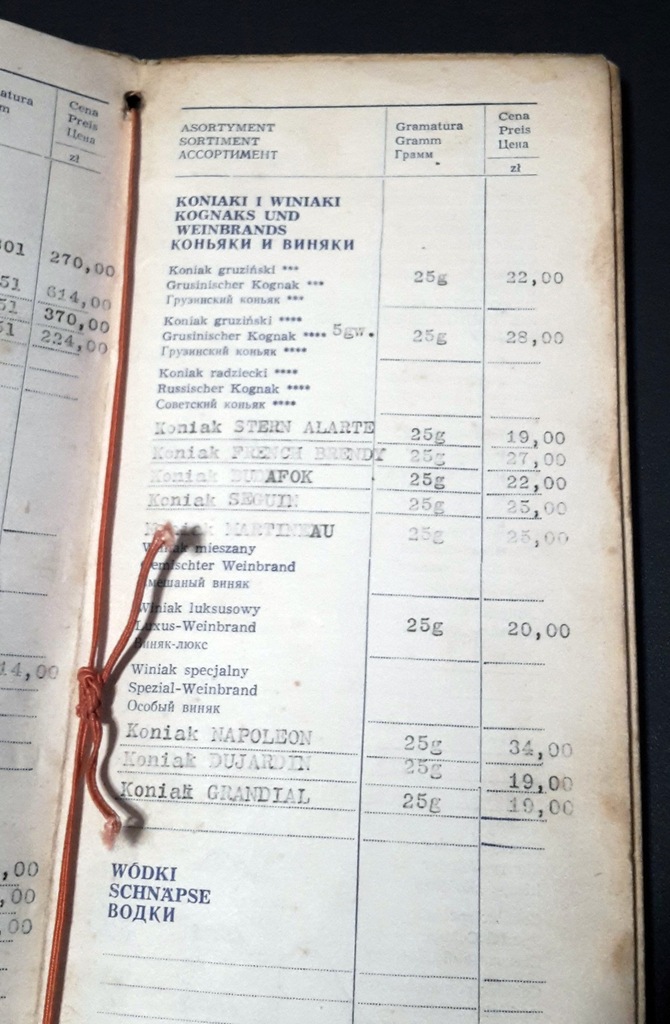 atura
m
Cena
Preis
Цена
zł
301
270,00
51
614,00
51
370,00
51
224,00
14,00
,00
,00
,00
ASORTYMENT
SORTIMENT
АССОРТИМЕНТ
Gramatura
Gramm
Грамм
Cena
Preis
Цена
zł
KONIAKI I WINIAKI
KOGNAKS UND
WEINBRANDS
КОНЬЯКИ И ВИНЯКИ
Koniak gruziński ***
Grusinischer Kognak *** 25g 22,00
Грузинский коньяк ***
Koniak gruziński ****
Grusinischer Kognak **** 5gw. 25g 28,00
Грузинский коньяк ****
Koniak radziecki ****
Russischer Kognak ****
Советский коньяк ****
Koniak STERN ALARTE 25g 19,00
Koniak FRENCH BRENDY 25g 27,00
Koniak BUDAFOK 25g 22,00
Koniak SEGUIN 25g 25,00
Koniak MARTINEAU 25g 25,00
Winiak mieszany
Gemischter Weinbrand
Смешаный виняк
Winiak luksusowy
Luxus-Weinbrand 25g 20,00
Виняк-люкс
Winiak specjalny
Spezial-Weinbrand
Особый виняк
Koniak NAPOLEON 25g 34,00
Koniak DUJARDIN 25g 19,00
Koniak GRANDIAL 25g 19,00
WÓDKI
SCHNÄPSE
ВОДКИ